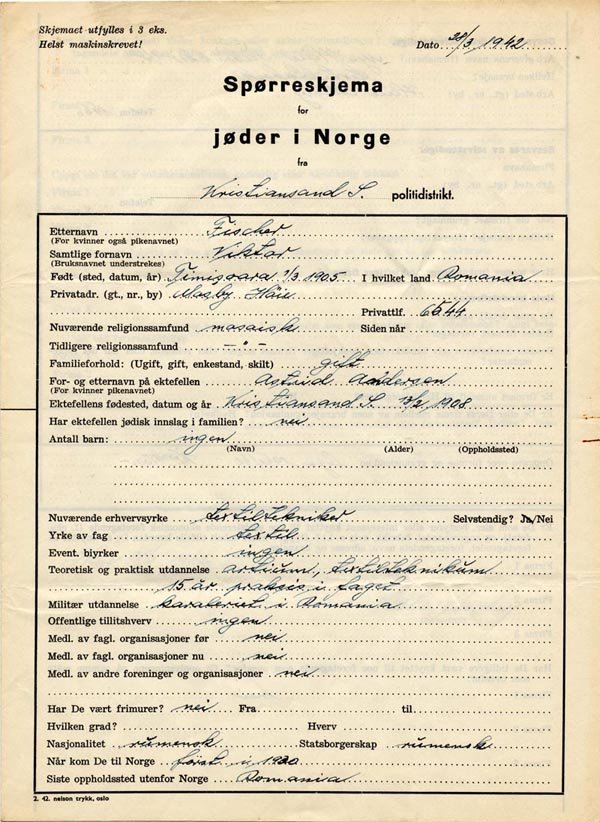 Skjemaet utfylles i 3 eks.
Helst maskinskrevet!
Dato 28/3 1942
Spørreskjema
for
jøder i Norge
fra
Kristiansand S. politidistrikt.
Etternavn Fischer
(For kvinner også pikenavnet)
Samtlige fornavn Viktor
(Bruksnavnet understrekes)
Født (sted, datum, år) Timisoara 1/3 1905 I hvilket land Romania
Privatadr. (gt., nr., by) Mosby Höie
Privattlf. 6544
Nuværende religionssamfund mosaisk Siden når
Tidligere religionssamfund — " —
Familieforhold: (Ugift, gift, enkestand, skilt) gift
For- og etternavn på ektefellen Astrid Andersen
(For kvinner pikenavnet)
Ektefellens fødested, datum og år Kristiansand S. /2 1908
Har ektefellen jødisk innslag i familien? nei
Antall barn: ingen
(Navn) (Alder) (Oppholdssted)
Nuværende erhvervsyrke textiltekniker Selvstendig? Ja/Nei
Yrke av fag textil
Event. biyrker ingen
Teoretisk og praktisk utdannelse artium, textilteknikum
15 år praksis i faget
Militær utdannelse kavaleriet i Romania
Offentlige tillitshverv ingen
Medl. av fagl. organisasjoner før nei
Medl. av fagl. organisasjoner nu nei
Medl. av andre foreninger og organisasjoner nei
Har De vært frimurer? nei Fra til
Hvilken grad? Hverv
Nasjonalitet rumensk Statsborgerskap rumensk
Når kom De til Norge først i 1930
Siste oppholdssted utenfor Norge Romania
2. 42. nelson trykk, oslo